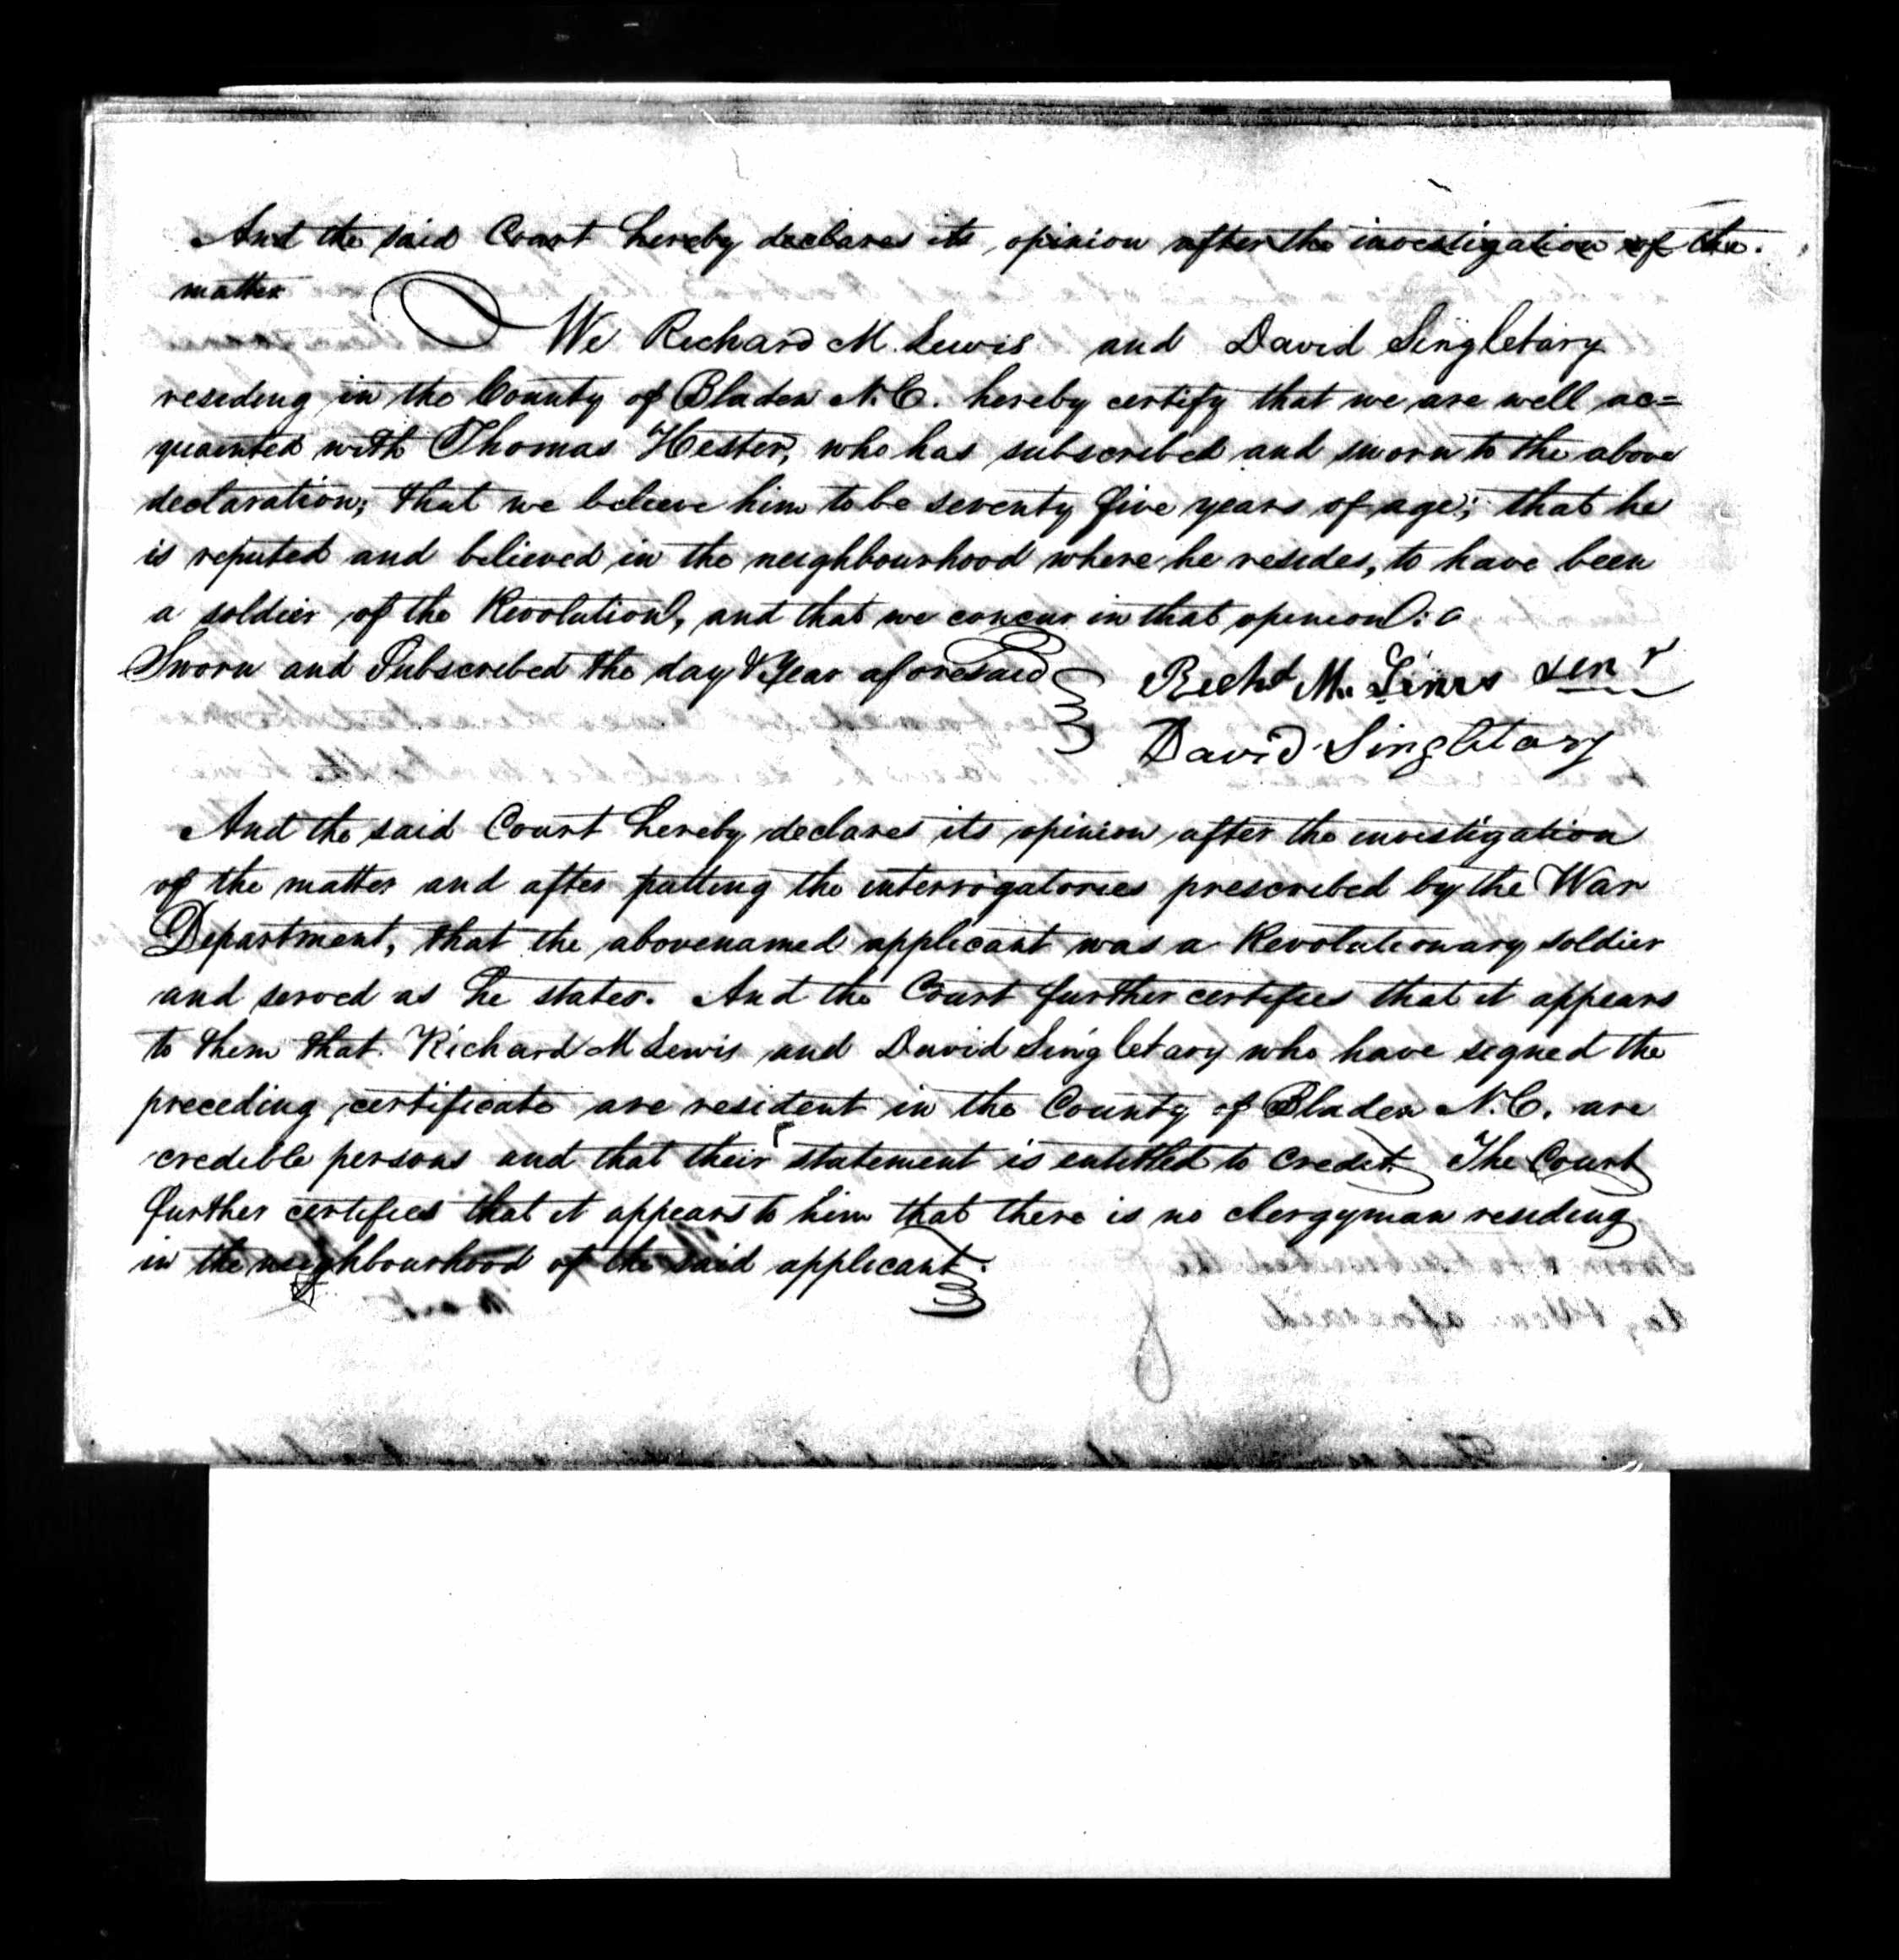 And the said Court hereby declares its opinion after the investigation of the.
matter
We Richard M. Lewis and David Singletary
residing in the County of Bladen N.C. hereby certify that we are well ac=
quainted with Thomas Hester, who has subscribed and sworn to the above
declaration; that we believe him to be seventy five years of age; that he
is reputed and believed in the neighbourhood where he resides, to have been
a soldier of the Revolution, and that we concur in that opinion.
Sworn and Subscribed the day & Year aforesaid
Richd M. Lewis senr
David Singletary
And the said Court hereby declares its opinion after the investigation
of the matter and after putting the interrogatories prescribed by the War
Department, that the abovenamed applicant was a Revolutionary soldier
and served as he states. And the Court further certifies that it appears
to them that Richard M Lewis and David Singletary who have signed the
preceding certificate are resident in the County of Bladen N.C. are
credible persons and that their statement is entitled to credit. The Court
further certifies that it appears to him that there is no clergyman residing
in the neighbourhood of the said applicant.